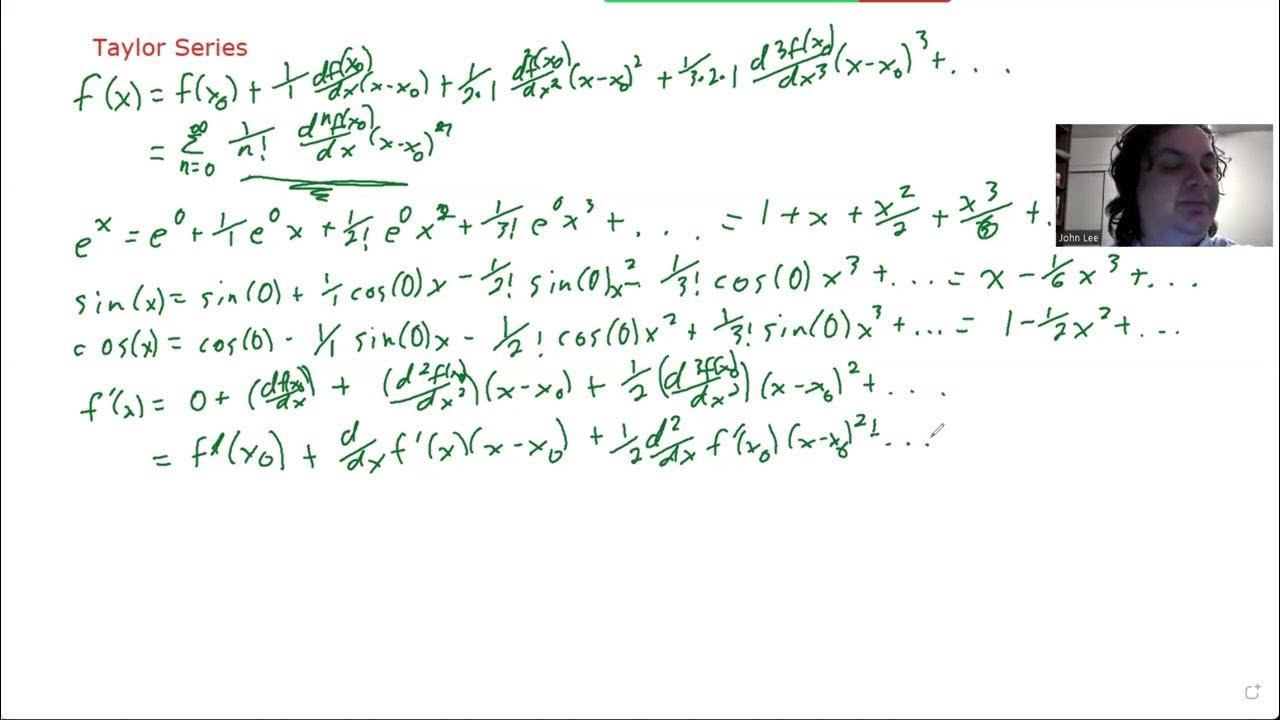 Taylor Series
f(x) = f(x₀) + 1/1 df(x₀)/dx (x-x₀) + 1/2·1 d²f(x₀)/dx² (x-x₀)² + 1/3·2·1 d³f(x₀)/dx³ (x-x₀)³ + . . .
= Σ n=0 ∞ 1/n! dⁿf(x₀)/dx (x-x₀)ⁿ
eˣ = e⁰ + 1/1 e⁰ x + 1/2! e⁰ x² + 1/3! e⁰ x³ + . . . = 1 + x + x²/2 + x³/6 + .
John Lee
sin(x) = sin(0) + 1/1 cos(0) x - 1/2! sin(0) x² - 1/3! cos(0) x³ + ... = x - 1/6 x³ + ...
cos(x) = cos(0) - 1/1 sin(0) x - 1/2! cos(0) x² + 1/3! sin(0) x³ + ... = 1 - 1/2 x² + ...
f'(x) = 0 + (df(x₀)/dx) + (d²f(x₀)/dx²)(x-x₀) + 1/2 (d³f(x₀)/dx³)(x-x₀)² + . . .
= f'(x₀) + d/dx f'(x)(x-x₀) + 1/2 d²/dx f'(x₀)(x-x₀)² + . . .